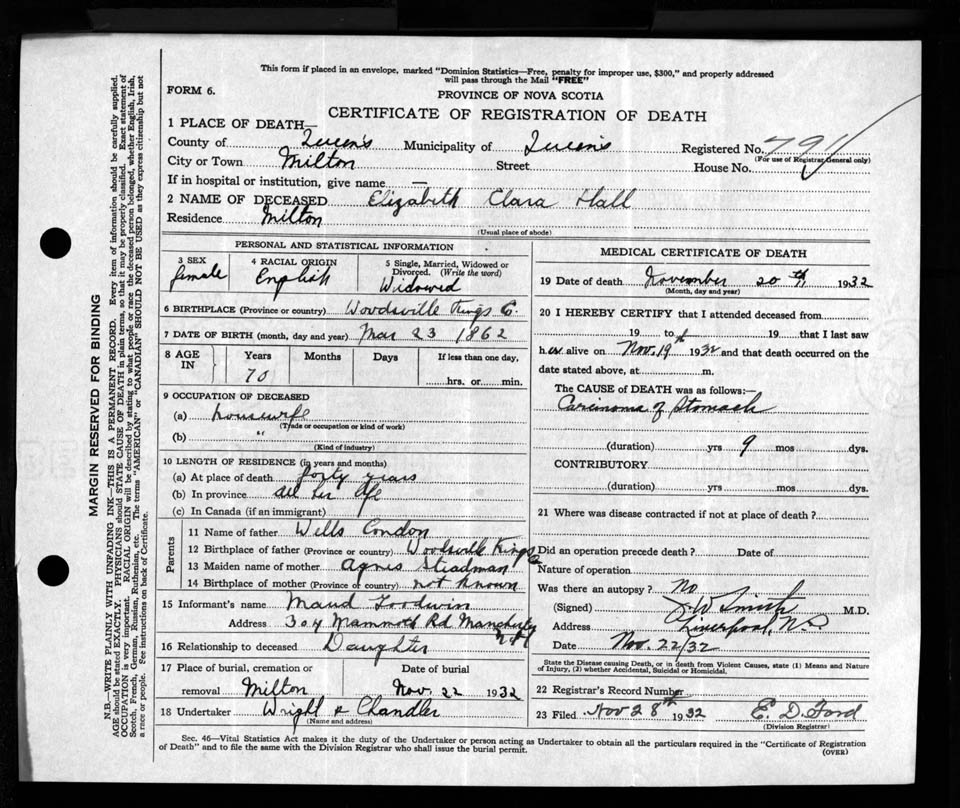 This form if placed in an envelope, marked "Dominion Statistics—Free, penalty for improper use, $300," and properly addressed
will pass through the Mail "FREE"
FORM 6.
PROVINCE OF NOVA SCOTIA
CERTIFICATE OF REGISTRATION OF DEATH
1 PLACE OF DEATH—
County of Queen's Municipality of Queen's Registered No. 791
(For use of Registrar General only)
City or Town Milton Street House No.
If in hospital or institution, give name —
2 NAME OF DECEASED Elizabeth Clara Hall
Residence Milton
(Usual place of abode)
PERSONAL AND STATISTICAL INFORMATION
3 SEX
female
4 RACIAL ORIGIN
English
5 Single, Married, Widowed or
Divorced. (Write the word)
Widowed
6 BIRTHPLACE (Province or country) Woodsville Kings C.
7 DATE OF BIRTH (month, day and year) Mar 23 1862
8 AGE IN
Years Months Days If less than one day,
70
hrs. or min.
9 OCCUPATION OF DECEASED
(a) housewife
(Trade or occupation or kind of work)
(b) "
(Kind of industry)
10 LENGTH OF RESIDENCE (in years and months)
(a) At place of death forty years
(b) In province all her life
(c) In Canada (if an immigrant)
Parents
11 Name of father Wells Condon
12 Birthplace of father (Province or country) Woodsville Kings Co
13 Maiden name of mother Agnes Steadman
14 Birthplace of mother (Province or country) not known
15 Informant's name Maud Goodwin
Address 304 Mammoth Rd Manchester
N.H.
16 Relationship to deceased Daughter
17 Place of burial, cremation or Date of burial
removal Milton Nov. 22 1932
18 Undertaker Wright & Chandler
(Name and address)
MEDICAL CERTIFICATE OF DEATH
19 Date of death November 20th 1932
(Month, day and year)
20 I HEREBY CERTIFY that I attended deceased from
19 to 19 that I last saw
her alive on Nov. 19th 1932 and that death occurred on the
date stated above, at m.
The CAUSE of DEATH was as follows:—
Carcinoma of Stomach
(duration) yrs 9 mos dys.
CONTRIBUTORY
(duration) yrs mos dys.
21 Where was disease contracted if not at place of death?
Did an operation precede death? Date of
Nature of operation
Was there an autopsy? No
(Signed) J.W. Smith M.D.
Address Liverpool, N.S.
Date Nov. 22/32
State the Disease causing Death, or in death from Violent Causes, state (1) Means and Nature
of Injury, (2) whether Accidental, Suicidal or Homicidal.
22 Registrar's Record Number
23 Filed Nov 28th 1932 E. D. Ford
(Division Registrar)
Sec. 46—Vital Statistics Act makes it the duty of the Undertaker or person acting as Undertaker to obtain all the particulars required in the "Certificate of Registration
of Death" and to file the same with the Division Registrar who shall issue the burial permit.
(OVER)
MARGIN RESERVED FOR BINDING
N.B.—WRITE PLAINLY WITH UNFADING INK—THIS IS A PERMANENT RECORD. Every item of information should be carefully supplied.
AGE should be stated EXACTLY. PHYSICIANS should STATE CAUSE OF DEATH in plain terms, so that it may be properly classified. Exact statement of
OCCUPATION is very important. RACIAL ORIGIN will be described by stating to what people or race the deceased person belonged, whether English, Irish,
Scotch, French, German, Russian, Ruthenian, etc. The terms "AMERICAN" or "CANADIAN" SHOULD NOT BE USED as they express citizenship but not
a race or people. See instructions on back of Certificate.